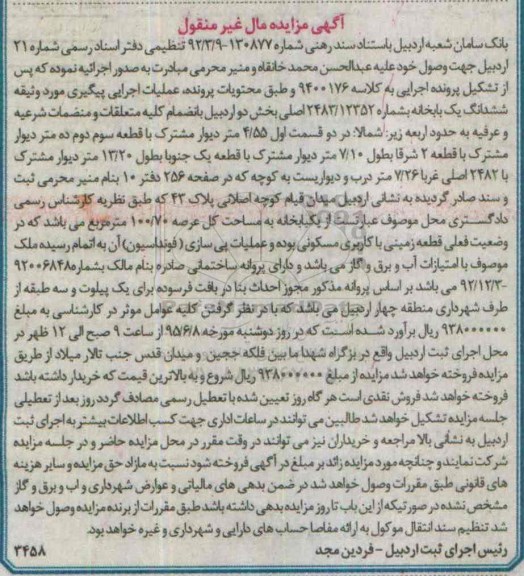 آگهی مزایده مال غیر منقول
بانک سامان شعبه اردبیل باستناد سند رهنی شماره ۱۳۰۸۷۷-۹۲/۳/۹ تنظیمی دفتر اسناد رسمی شماره ۲۱
اردبیل جهت وصول خود علیه عبدالحسن محمد خانقاه و منیر محرمی مبادرت به صدور اجرائیه نموده که پس
از تشکیل پرونده اجرایی به کلاسه ۹۴۰۰۱۷۶ و طبق محتویات پرونده، عملیات اجرایی پیگیری مورد وثیقه
ششدانگ یک بابخانه بشماره ۲۴۸۳/۱۲۳۵۲ اصلی بخش دو اردبیل بانضمام کلیه متعلقات و منضمات شرعیه
و عرفیه به حدود اربعه زیر: شمالا: در دو قسمت اول ۴/۵۵ متر دیوار مشترک با قطعه سوم دوم ده متر دیوار
مشترک با قطعه ۲ شرقا بطول ۷/۱۰ متر دیوار مشترک با قطعه یک جنوبا بطول ۱۳/۲۰ متر دیوار مشترک
با ۲۴۸۲ اصلی غربا ۷/۲۶ متر درب و دیواریست به کوچه که در صفحه ۲۵۶ دفتر ۱۰ بنام منیر محرمی ثبت
و سند صادر گردیده به نشانی اردبیل میدان قیام کوچه اصلانی پلاک ۴۳ که طبق نظریه کارشناس رسمی
دادگستری محل موصوف عبارتست از یکبابخانه به مساحت کل عرصه ۱۰۰/۷۰ مترمربع می باشد که در
وضعیت فعلی قطعه زمینی با کاربری مسکونی بوده و عملیات پی سازی (فونداسیون) آن به اتمام رسیده ملک
موصوف با امتیازات آب و برق و گاز می باشد و دارای پروانه ساختمانی صادره بنام مالک بشماره ۹۲۰۰۶۸۴۸
-۹۲/۱۲/۳ می باشد بر اساس پروانه مذکور مجوز احداث بنا در بافت فرسوده برای یک پیلوت و سه طبقه از
طرف شهرداری منطقه چهار اردبیل می باشد که با در نظر گرفتن کلیه عوامل موثر در کارشناسی به مبلغ
۹۳۸۰۰۰۰۰۰ ریال برآورد شده است که در روز دوشنبه مورخه ۹۵/۶/۸ از ساعت ۹ صبح الی ۱۲ ظهر در
محل اجرای ثبت اردبیل واقع در بزرگراه شهدا ما بین فلکه ججین و میدان قدس جنب تالار میلاد از طریق
مزایده فروخته خواهد شد مزایده از مبلغ ۹۳۸۰۰۰۰۰۰ ریال شروع و به بالاترین قیمت که خریدار داشته باشد
فروخته خواهد شد فروش نقدی است هر گاه روز تعیین شده با تعطیل رسمی مصادف گردد روز بعد از تعطیلی
جلسه مزایده تشکیل خواهد شد طالبین می توانند در ساعات اداری جهت کسب اطلاعات بیشتر به اجرای ثبت
اردبیل به نشانی بالا مراجعه و خریداران نیز می توانند در وقت مقرر در محل مزایده حاضر و در جلسه مزایده
شرکت نمایند و چنانچه مورد مزایده زائد بر مبلغ در آگهی فروخته شود نسبت به مازاد حق مزایده و سایر هزینه
های قانونی طبق مقررات وصول خواهد شد در ضمن بدهی های مالیاتی و عوارض شهرداری و آب و برق و گاز
مشخص نشده در صورتیکه از این باب تا روز مزایده بدهی داشته باشد طبق مقررات از برنده مزایده وصول خواهد
شد تنظیم سند انتقال موکول به ارائه مفاصا حساب های دارایی و شهرداری و غیره خواهد بود.
رئیس اجرای ثبت اردبیل - فردین مجد ۳۴۵۸